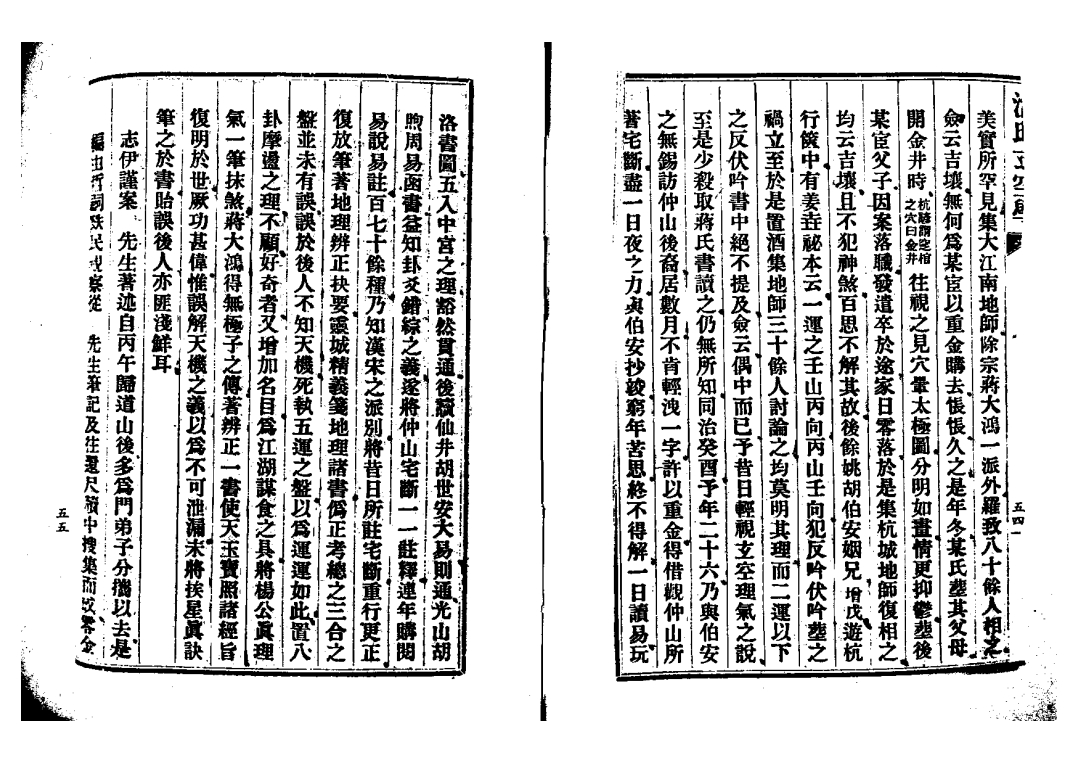 美實所罕見集大江南地師除宗蔣大鴻一派外羅致八十餘人相之
僉云吉壤無何爲某宦以重金購去悵悵久之是年冬某氏塟其父母
開金井時杭諺謂窆棺之穴曰金井往視之見穴暈太極圖分明如畫情更抑鬱塟後
某宦父子因案落職發遣卒於途家日零落於是集杭城地師復相之
均云吉壤且不犯神煞百思不解其故後餘姚胡伯安姻兄增戊遊杭
行篋中有姜垚祕本云一運之壬山丙向丙山壬向犯反吟伏吟塟之
禍立至於是置酒集地師三十餘人討論之均莫明其理而二運以下
之反伏吟書中絕不提及僉云偶中而已予昔日輕視玄空理氣之說
至是少殺取蔣氏書讀之仍無所知同治癸酉予年二十六乃與伯安
之無錫訪仲山後裔居數月不肯輕洩一字許以重金得借觀仲山所
著宅斷盡一日夜之力與伯安抄竣窮年苦思終不得解一日讀易玩
五四
洛書圖五入中宮之理豁然貫通後讀仙井胡世安大易則通光山胡
煦周易函書益知卦爻錯綜之義遂將仲山宅斷一一註釋連年購閱
易說易註百七十餘種乃知漢宋之派別將昔日所註宅斷重行更正
復放筆著地理辨正抉要靈城精義箋地理諸書僞正考總之三合之
盤並未有誤誤於後人不知天機死執五運之盤以爲運運如此置八
卦摩盪之理不顧好奇者又增加名目爲江湖謀食之具將楊公眞理
氣一筆抹煞蔣大鴻得無極子之傳著辨正一書使天玉寶照諸經旨
復明於世厥功甚偉惟誤解天機之義以爲不可泄漏未將挨星眞訣
筆之於書貽誤後人亦匪淺鮮耳
志伊謹案　先生著述自丙午歸道山後多爲門弟子分攜以去是
編由哲嗣　民　察從　先生筆記及往還尺牘中搜集而成零金
五五